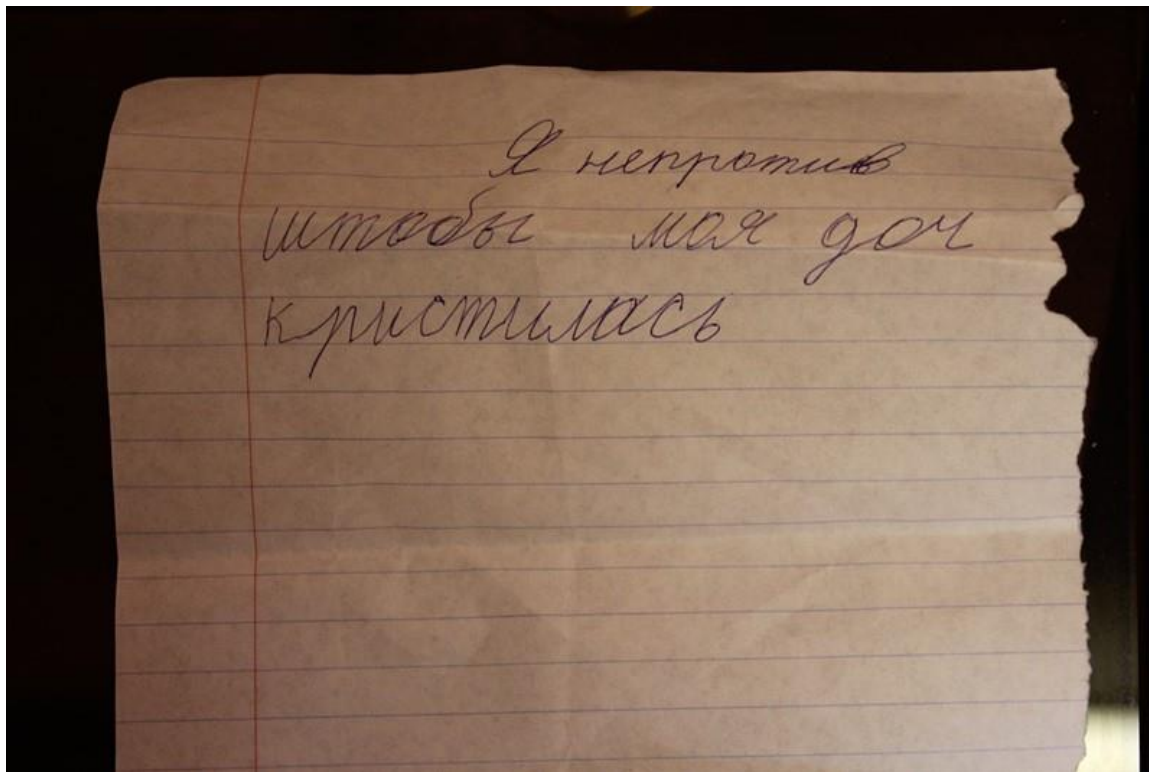 Я непротив
штобы моя доч
кристилась